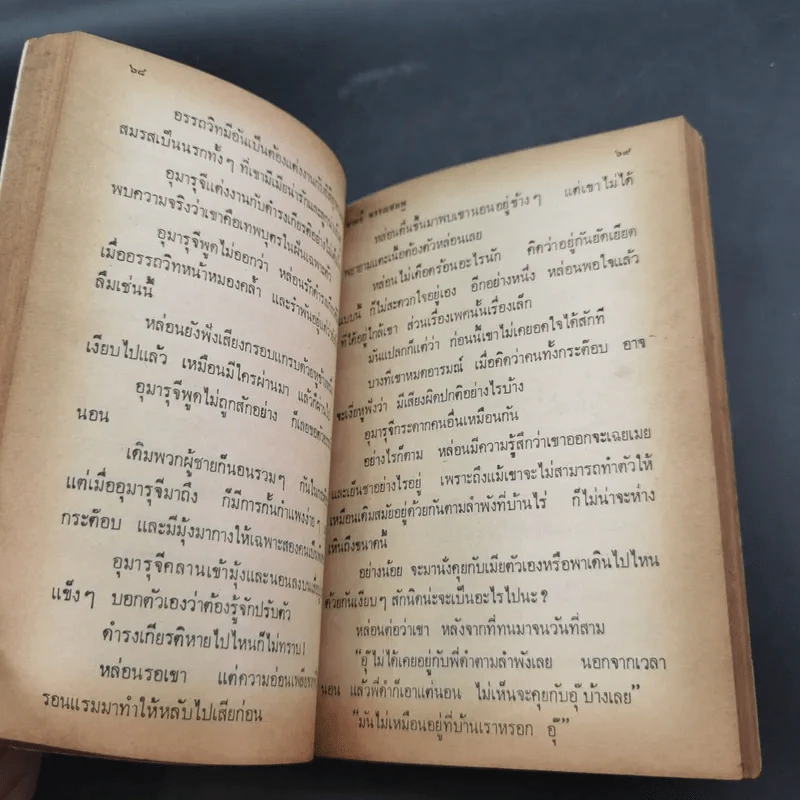 ๖๘
อรรถวิทมีอันเป็นต้องแต่งงานกับ
สมรสเป็นนรกทั้งๆ ที่เขามีเมียน่ารักและ
อุมารุจีแต่งงานกับดำรงเกียรติอย่างไม่
พบความจริงว่าเขาคือเทพบุตรในฝันเฉพาะ
อุมารุจีพูดไม่ออกว่า หล่อนรักดำรง
เมื่ออรรถวิทหน้าหมองคล้ำ และรำพันอยู่
ลืมเช่นนี้
หล่อนยังฟังเสียงกรอบแกรบด้วย
เงียบไปแล้ว เหมือนมีใครผ่านมา แล้วก็ผ่านไป
อุมารุจีพูดไม่ถูกสักอย่าง ก็เลย
นอน
เดิมพวกผู้ชายก็นอนรวมๆ กันใน
แต่เมื่ออุมารุจีมาถึง ก็มีการกั้นกำแพงง่ายๆ
กระต๊อบ และมีมุ้งมากางให้เฉพาะสองคน
อุมารุจีคลานเข้ามุ้งและนอนลงบน
แข็งๆ บอกตัวเองว่าต้องรู้จักปรับตัว
ดำรงเกียรติหายไปไหนก็ไม่ทราบ!
หล่อนรอเขา แต่ความอ่อนเพลีย
รอนแรมมาทำให้หลับไปเสียก่อน
๖๙
หล่อนตื่นขึ้นมาพบเขานอนอยู่ข้างๆ แต่เขาไม่ได้
พยายามแตะเนื้อต้องตัวหล่อนเลย
หล่อนไม่เดือดร้อนอะไรนัก คิดว่าอยู่กันยัดเยียด
แบบนี้ ก็ไม่สะดวกใจอยู่เอง อีกอย่างหนึ่ง หล่อนพอใจแล้ว
ที่ได้อยู่ใกล้เขา ส่วนเรื่องเพศนั้นเรื่องเล็ก
มันแปลกก็แต่ว่า ก่อนนี้เขาไม่เคยอดใจได้สักที
บางทีเขาหมดอารมณ์ เมื่อคิดว่าคนทั้งกระต๊อบ อาจ
จะเงี่ยหูฟังว่า มีเสียงผิดปกติอย่างไรบ้าง
อุมารุจีกระดากคนอื่นเหมือนกัน
อย่างไรก็ตาม หล่อนมีความรู้สึกว่าเขาออกจะเฉยเมย
และเย็นชาอย่างไรอยู่ เพราะถึงแม้เขาจะไม่สามารถทำตัวให้
เหมือนเดิมสมัยอยู่ด้วยกันตามลำพังที่บ้านไร่ ก็ไม่น่าจะห่าง
เหินถึงขนาดนี้
อย่างน้อย จะมานั่งคุยกับเมียตัวเองหรือพาเดินไปไหน
ด้วยกันเงียบๆ สักนิดน่ะจะเป็นอะไรไปนะ?
หล่อนต่อว่าเขา หลังจากที่ทนมาจนวันที่สาม
"อุ๊ไม่ได้เคยอยู่กับพี่ดำตามลำพังเลย นอกจากเวลา
นอน แล้วพี่ดำก็เอาแต่นอน ไม่เห็นจะคุยกับอุ๊บ้างเลย"
"มันไม่เหมือนอยู่ที่บ้านเราหรอก อุ๊"